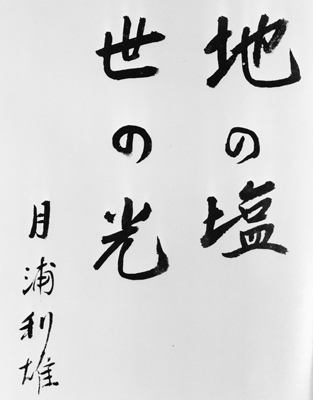 地の塩
世の光
月浦利雄